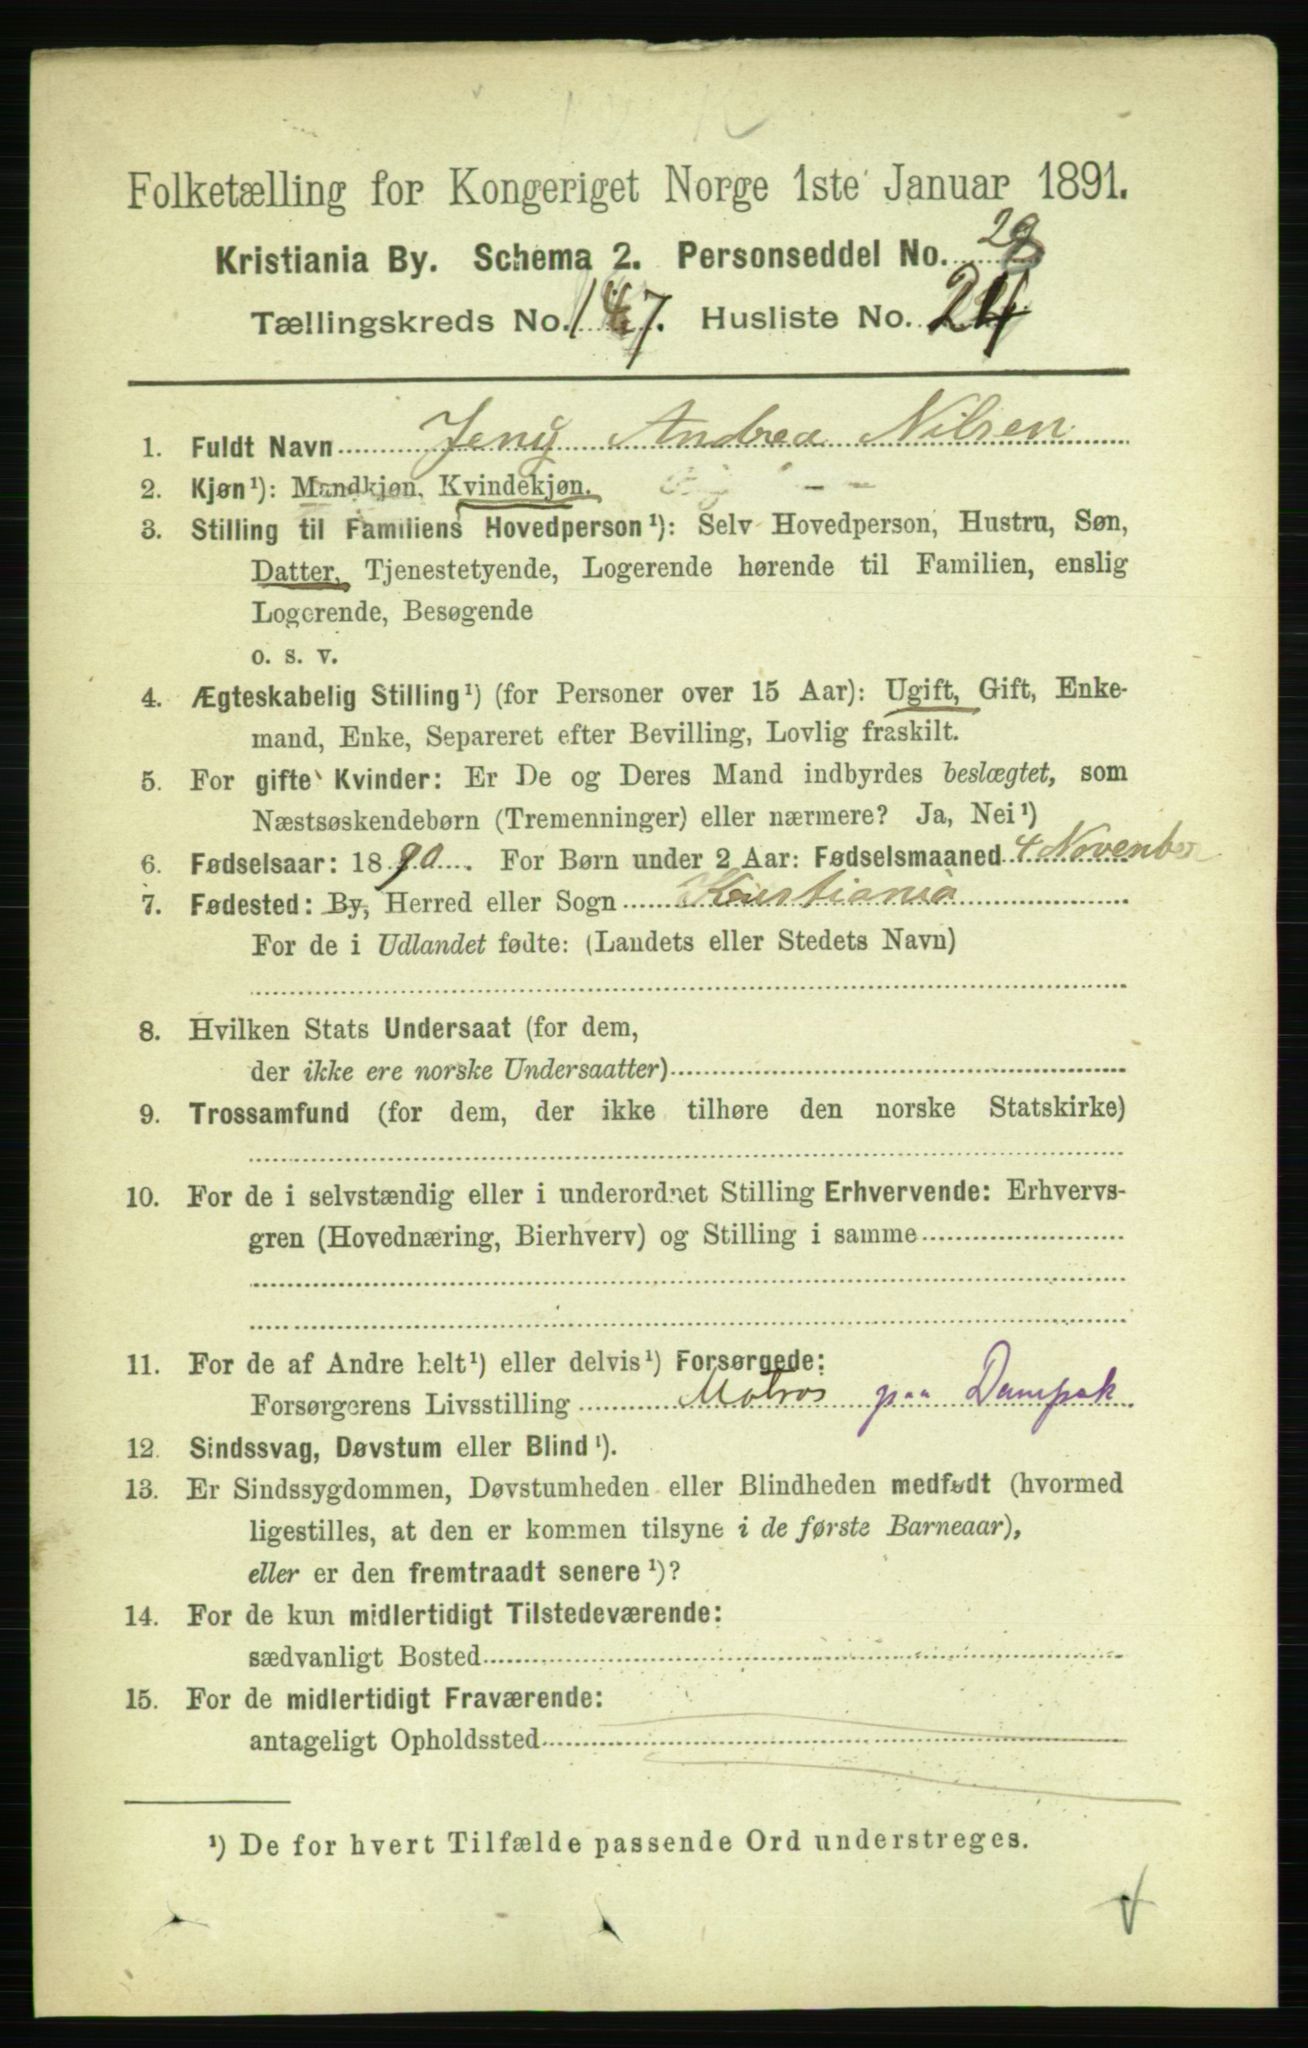 Folketælling for Kongeriget Norge 1ste Januar 1891.
Kristiania By. Schema 2. Personseddel No. 28
Tællingskreds No. 147. Husliste No. 24
1. Fuldt Navn Jeny Andrea Nilsen
2. Kjøn¹): Mandkjøn, Kvindekjøn.
3. Stilling til Familiens Hovedperson¹): Selv Hovedperson, Hustru, Søn,
Datter, Tjenestetyende, Logerende hørende til Familien, enslig
Logerende, Besøgende
o. s. v.
4. Ægteskabelig Stilling¹) (for Personer over 15 Aar): Ugift, Gift, Enke-
mand, Enke, Separeret efter Bevilling, Lovlig fraskilt.
5. For gifte Kvinder: Er De og Deres Mand indbyrdes beslægtet, som
Næstsøskendebørn (Tremenninger) eller nærmere? Ja, Nei¹)
6. Fødselsaar: 1890. For Børn under 2 Aar: Fødselsmaaned 4 November
7. Fødested: By, Herred eller Sogn Kristiania
For de i Udlandet fødte: (Landets eller Stedets Navn)
8. Hvilken Stats Undersaat (for dem,
der ikke ere norske Undersaatter)
9. Trossamfund (for dem, der ikke tilhøre den norske Statskirke)
10. For de i selvstændig eller i underordnet Stilling Erhvervende: Erhvervs-
gren (Hovednæring, Bierhverv) og Stilling i samme
11. For de af Andre helt¹) eller delvis¹) Forsørgede:
Forsørgerens Livsstilling Matros paa Dampsk.
12. Sindssvag, Døvstum eller Blind¹).
13. Er Sindssygdommen, Døvstumheden eller Blindheden medfødt (hvormed
ligestilles, at den er kommen tilsyne i de første Barneaar),
eller er den fremtraadt senere¹)?
14. For de kun midlertidigt Tilstedeværende:
sædvanligt Bosted
15. For de midlertidigt Fraværende:
antageligt Opholdssted
¹) De for hvert Tilfælde passende Ord understreges.